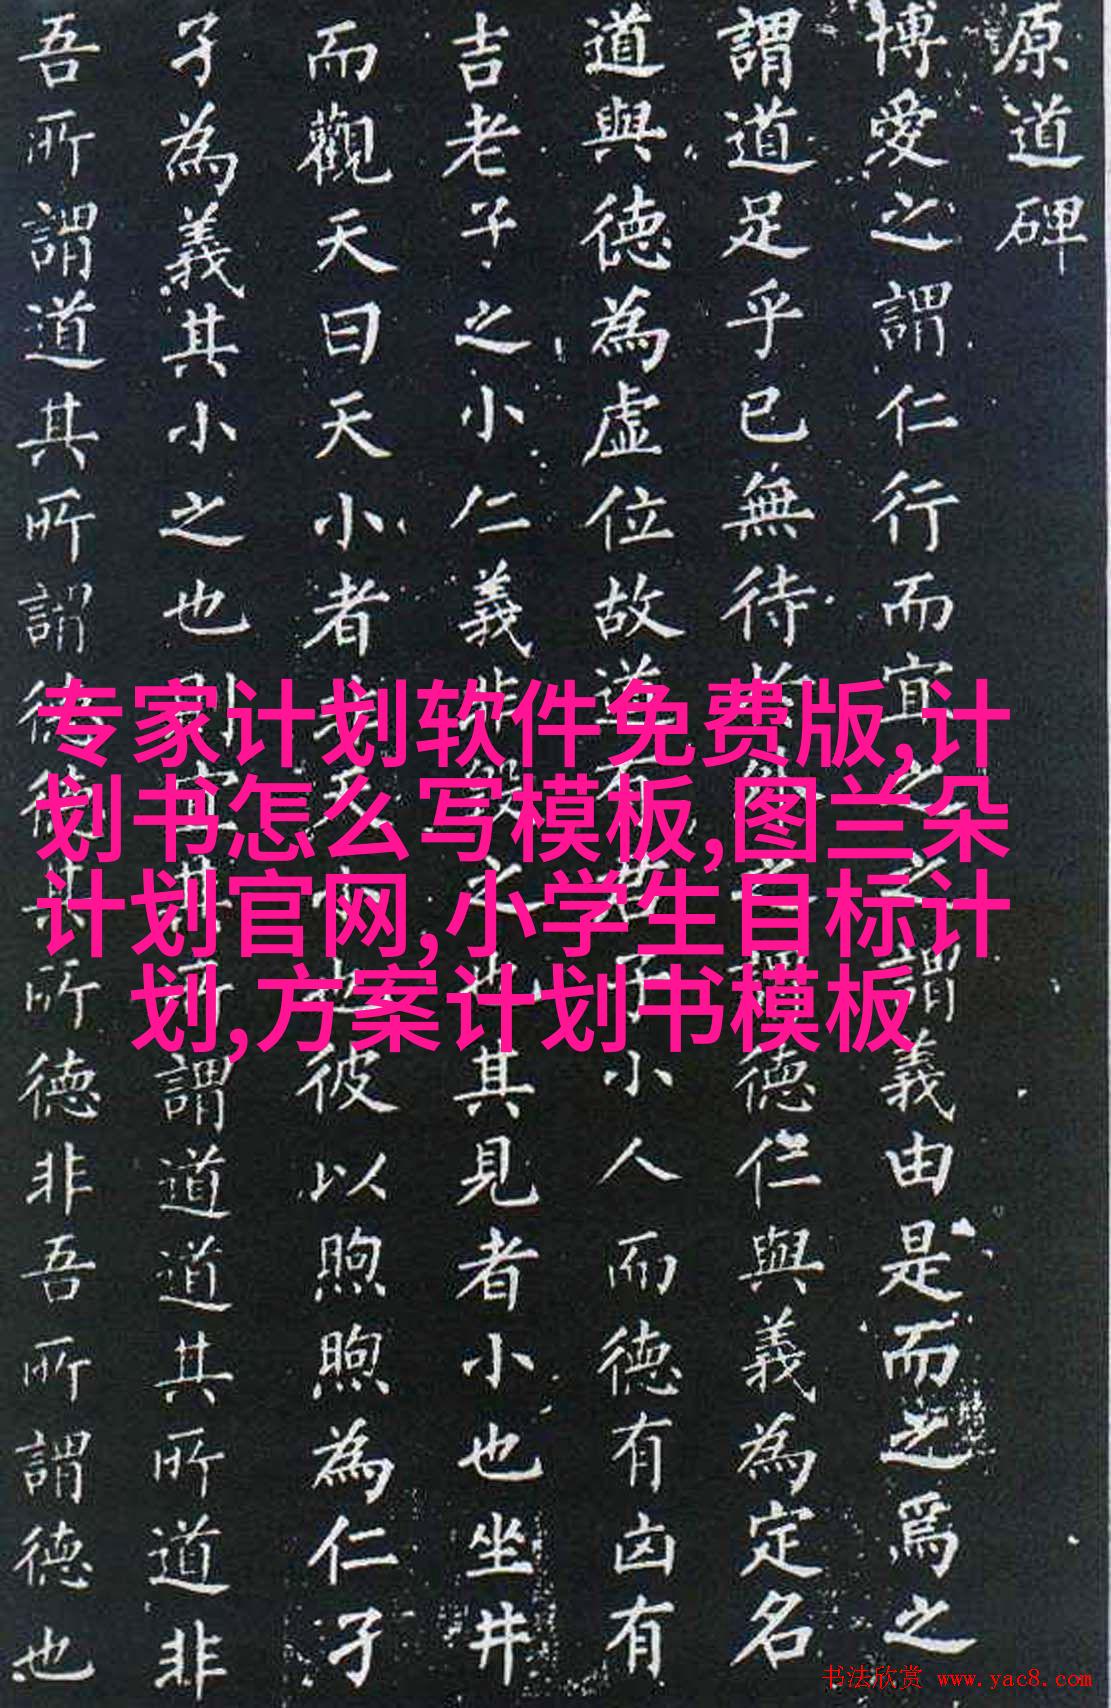 原道碑
博愛之謂仁行而宜之之謂義由是而之焉之
謂道足乎已無待於外之謂德仁與義為定名
道與德為虛位故道有君子小人而德有凶有
吉老子之小仁義非毀之也其見者小也坐井
而觀天曰天小者非天小也彼以煦煦為仁孑
孑為義其小之也則宜其所謂道道其所道非
吾所謂道其所謂德德其所德非吾所謂德也
专家计划软件免费版,计
划书怎么写模板,图兰朵
计划官网,小学生目标计
划,方案计划书模板
书法欣赏 www.yac8.com